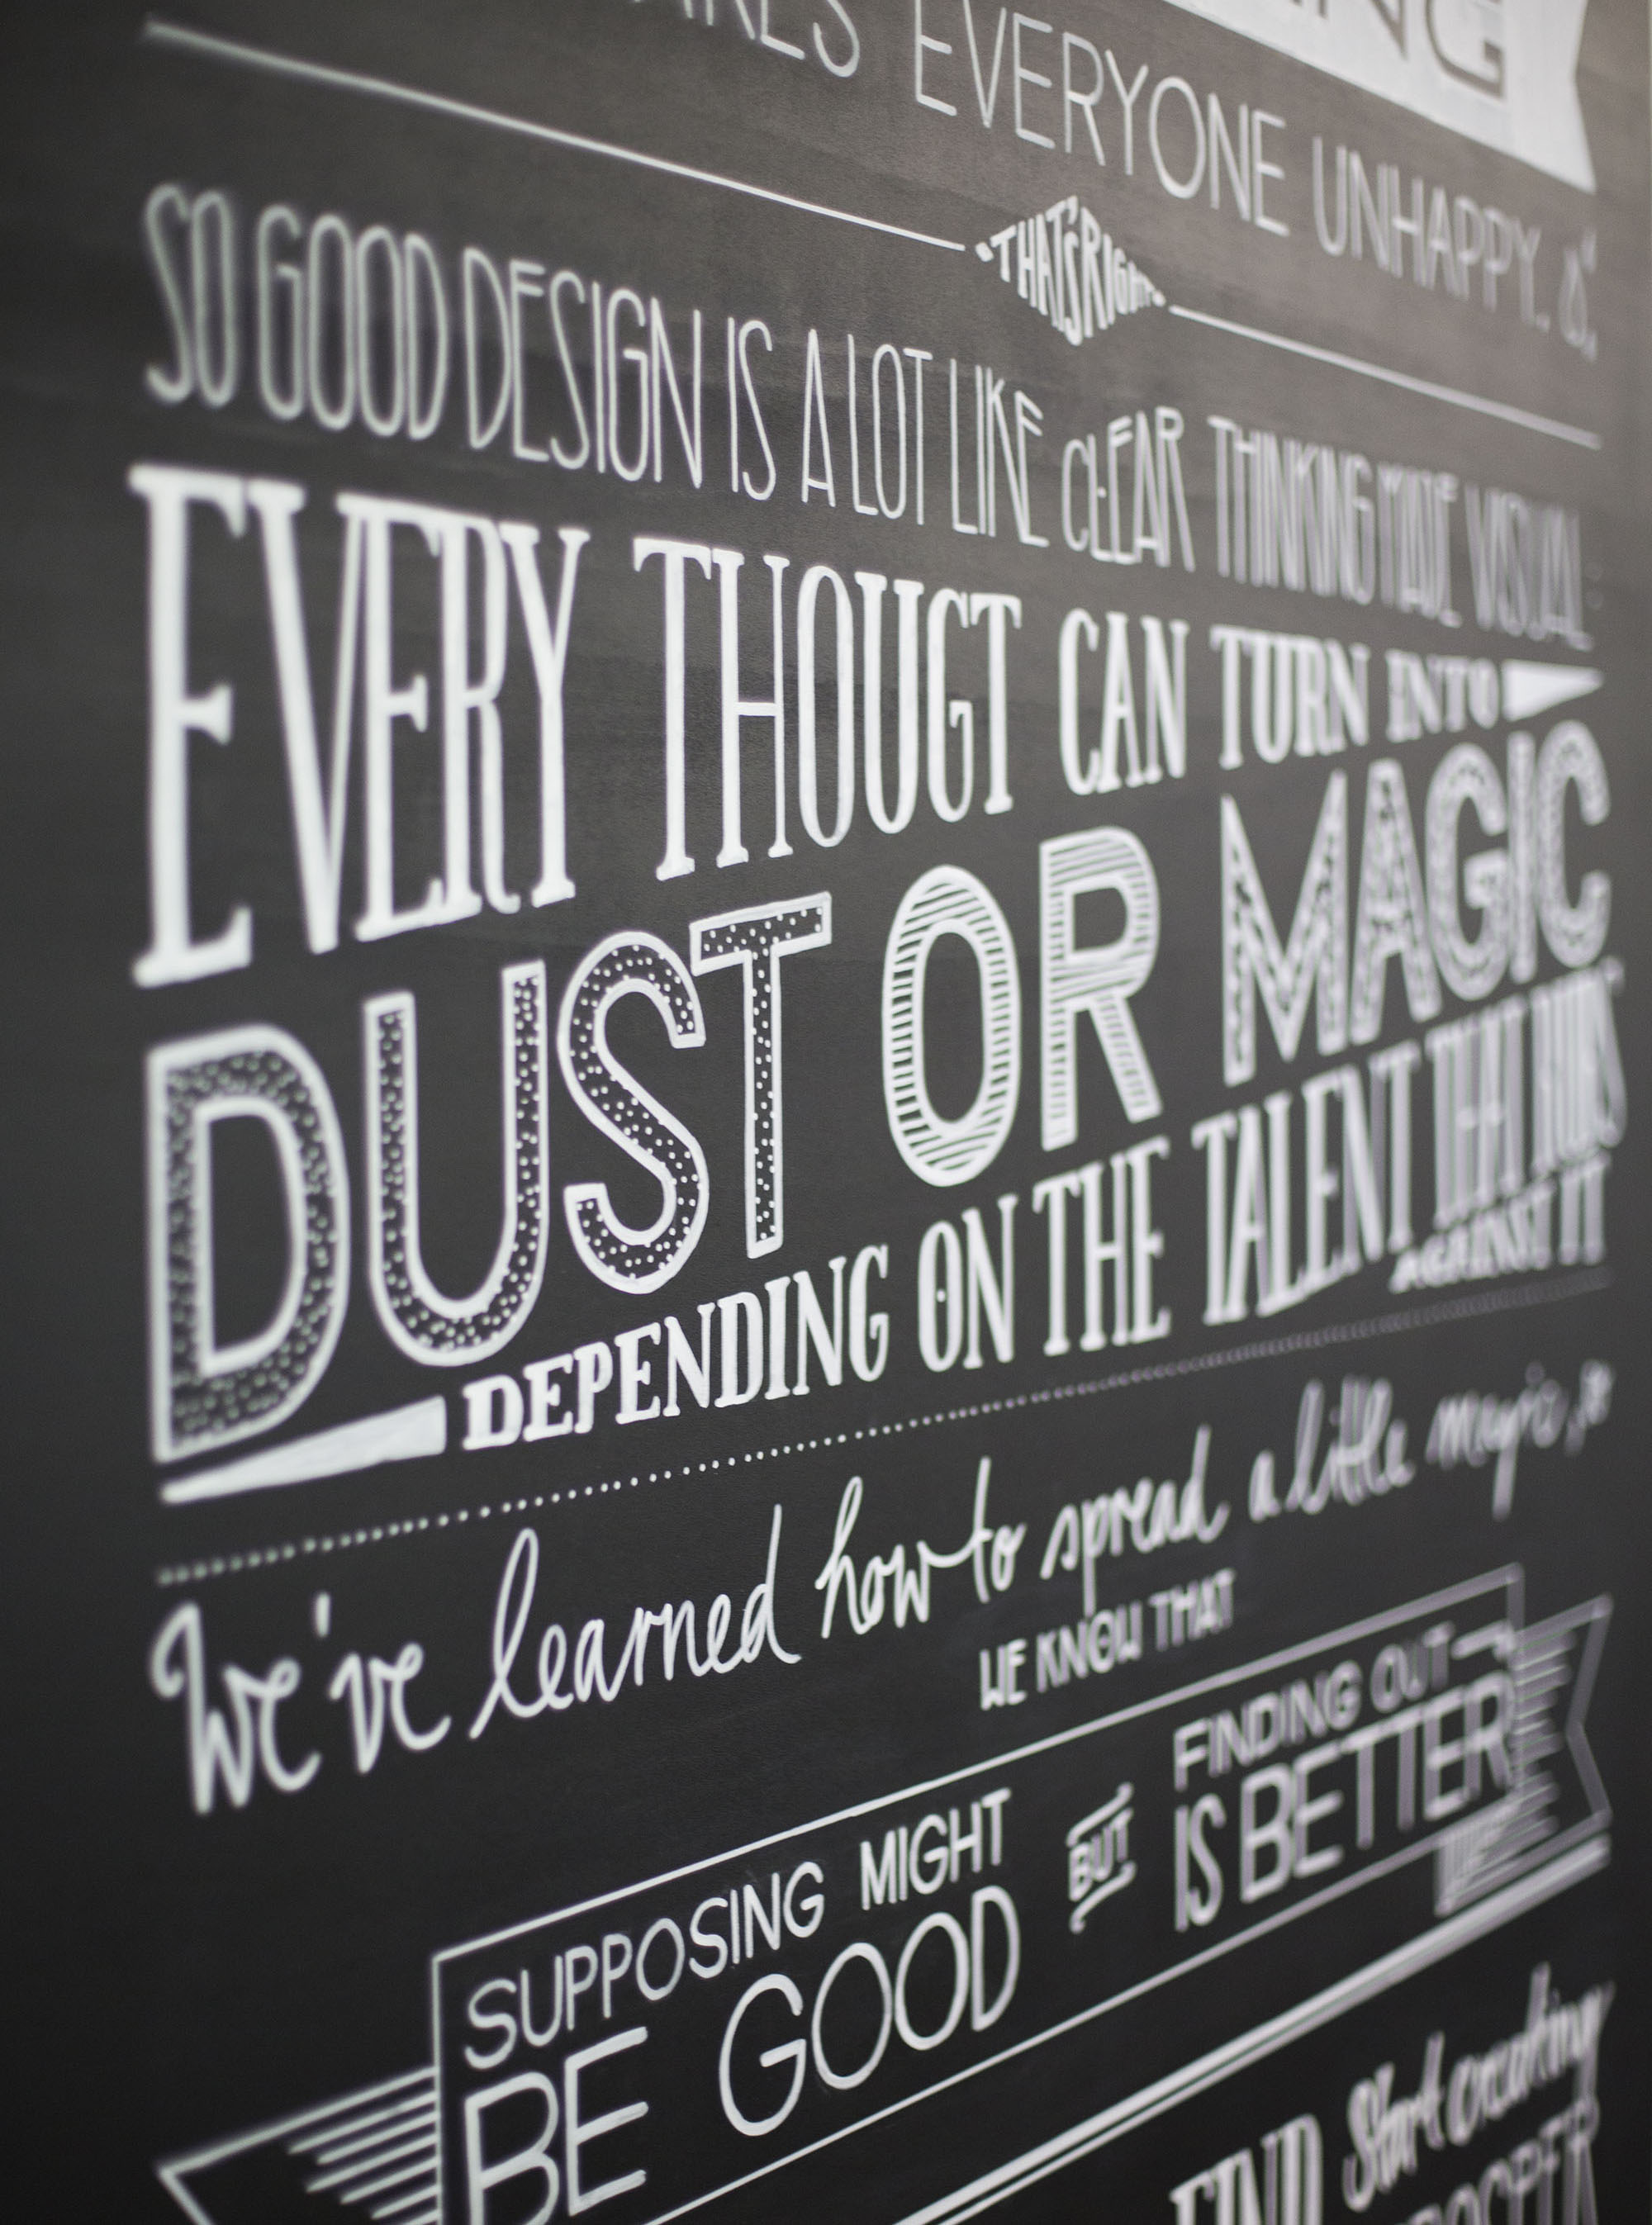 EVERYONE UNHAPPY. &
THAT'S RIGHT
SO GOOD DESIGN IS A LOT LIKE CLEAR THINKING MADE VISUAL:
EVERY THOUGT CAN TURN INTO
DUST OR MAGIC
DEPENDING ON THE TALENT THAT RUBS
AGAINST IT
We've learned how to spread a little magic,
WE KNOW THAT
SUPPOSING MIGHT
BE GOOD
BUT
FINDING OUT
IS BETTER
FIND Start creating